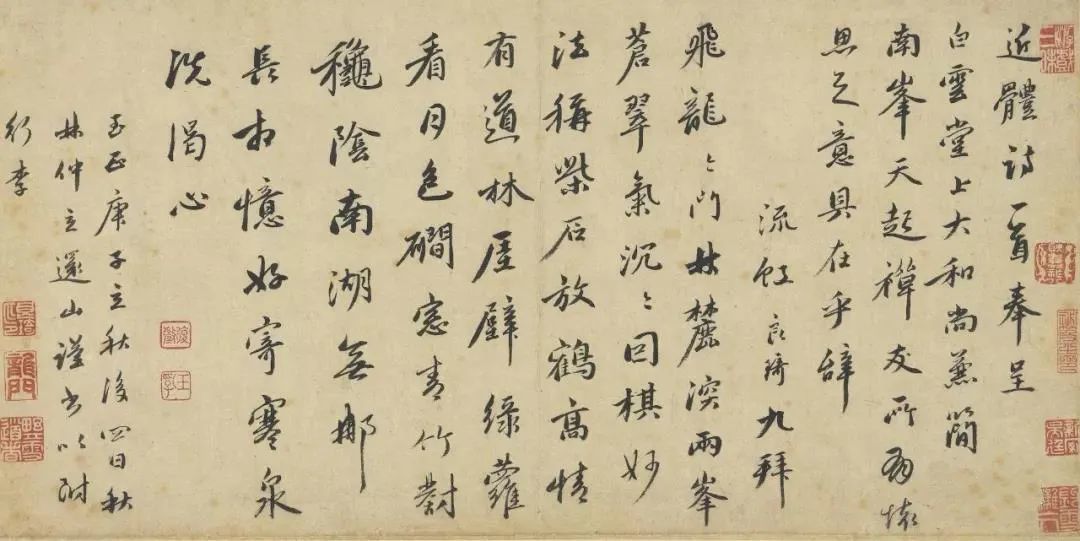 近體詩一首奉呈
白雲堂上大和尚兼簡
南峯天起禪友所有懷
思之意具在乎辭
流虹 良琦九拜
飛龍〻門林麓深兩峯
蒼翠氣沉〻因棋妙
法稱柴石放鶴高情
有道林屋壁綠蘿
看月色磵窓青竹對
龝陰南湖無那
長相憶好寄寒泉
洗渴心
至正庚子立秋後四日秋
林仲立還山謹書以附
行李